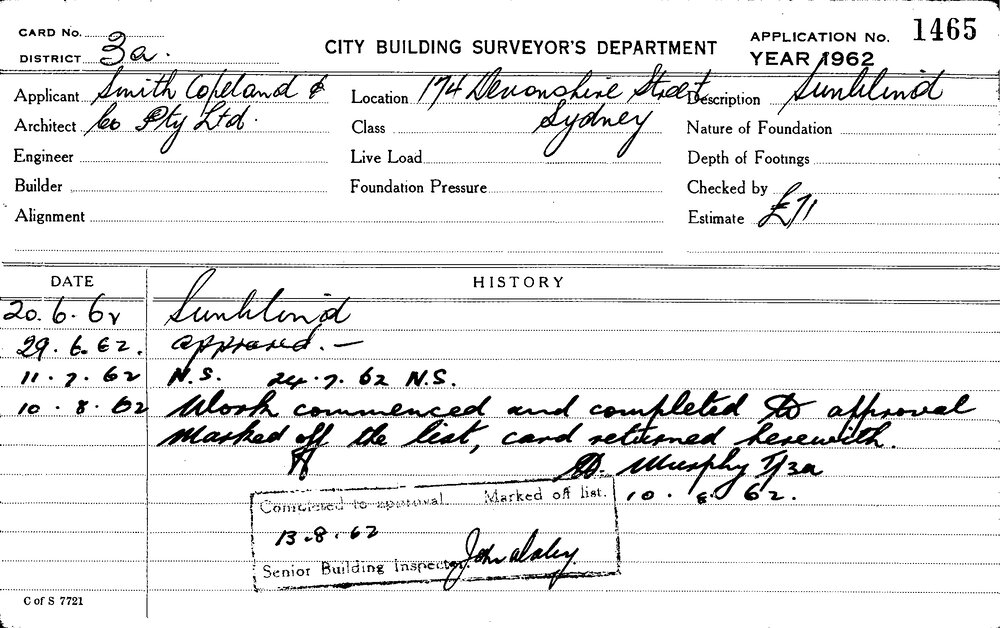 CARD No.
DISTRICT 3a.
CITY BUILDING SURVEYOR'S DEPARTMENT
APPLICATION No. 1465
YEAR 1962
Applicant Smith Copeland &
Location 174 Devonshire Street
Description Sunblind
Architect Co Pty Ltd.
Class Sydney
Nature of Foundation
Engineer
Live Load
Depth of Footings
Builder
Foundation Pressure
Checked by
Alignment
Estimate £71
DATE HISTORY
20.6.62 Sunblind
29.6.62. approved.—
11.7.62 N.S. 24.7.62 N.S.
10.8.62 Work commenced and completed to approval
marked off the list, card returned herewith.
Murphy 7/3a
10.8.62.
Completed to approval. Marked off list.
13.8.62
Senior Building Inspector. John
C of S 7721